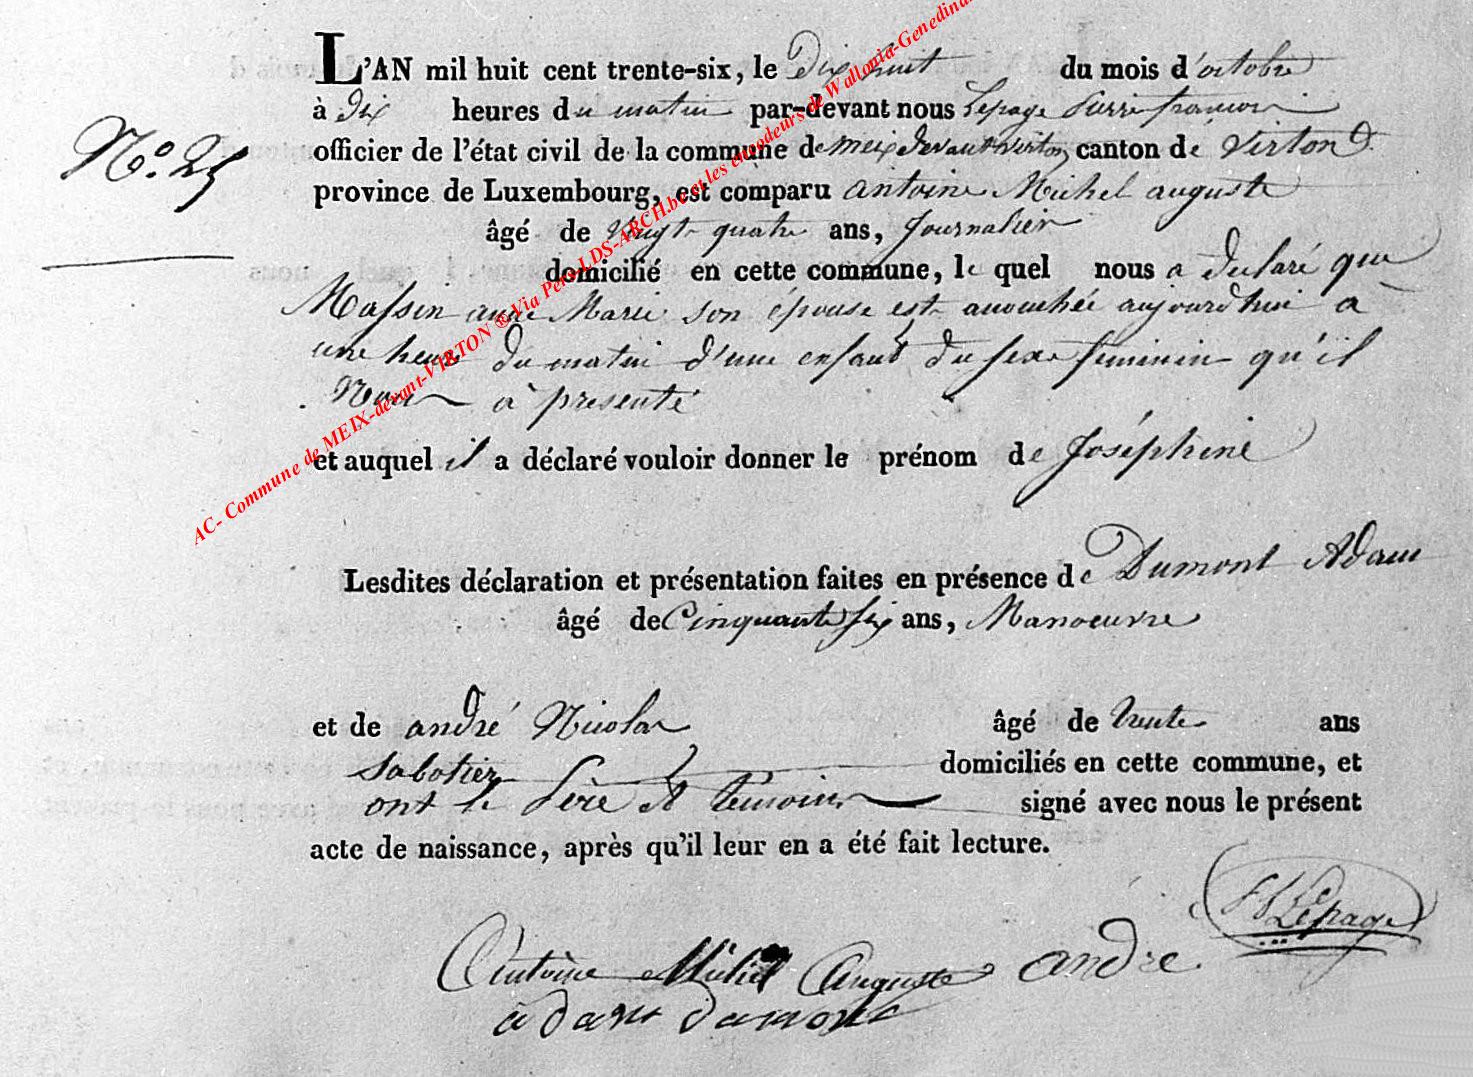 L'AN mil huit cent trente-six, le Dix huit du mois d'octobre
à Dix heures du matin par-devant nous Lepage Pierre françois
N.o 25
officier de l'état civil de la commune de meix devant virton canton de Virton
province de Luxembourg, est comparu antoine Michel auguste
âgé de vingt quatre ans, Journalier
domicilié en cette commune, le quel nous a declaré que
Massin anne Marie son épouse est accouchée aujourd'hui à
une heure du matin d'une enfant du sexe feminin qu'il
Nous à presenté
et auquel il a déclaré vouloir donner le prénom de Joséphine
Lesdites déclaration et présentation faites en présence de Dumont Adam
âgé de Cinquante six ans, Manoeuvre
et de andré Nicolas âgé de trente ans
Sabotier domiciliés en cette commune, et
ont le Père et temoins signé avec nous le présent
acte de naissance, après qu'il leur en a été fait lecture.
Lepage
Antoine Michel Auguste andré
adam dumont
AC- Commune de MEIX-devant-VIRTON ® Via Pers-LDS-ARCH.be et les encodeurs de Wallonia-Genedina